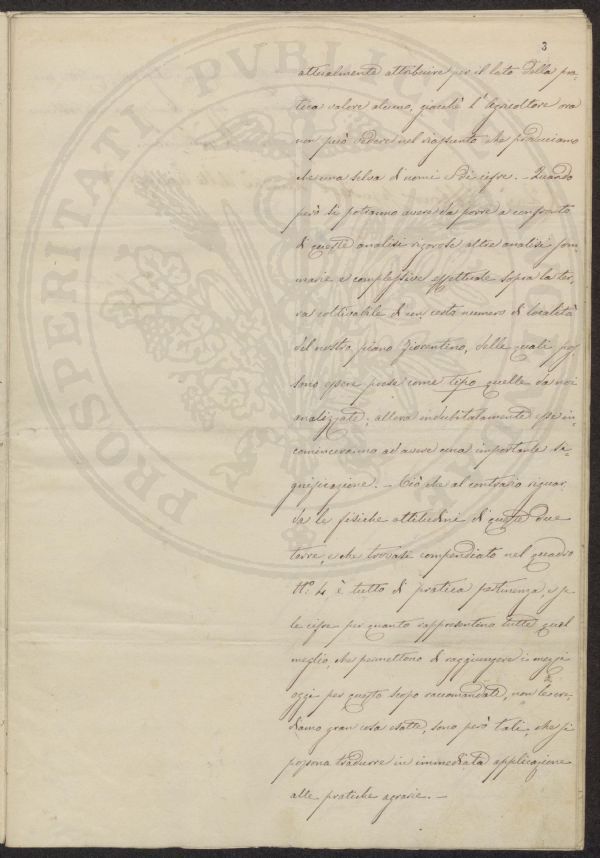 3
PROSPERITATI PVBLICAE
attualmente attribuire per il lato della pra-
tica valore alcuno, giacchè l'Agricoltore ora
non può vedere nel riassunto che produciamo
che una selva di nomi e di cifre. - Quando
però si potranno avere da porre a confronto
di queste analisi rigorose altre analisi som-
marie e complessive effettuate sopra la ter-
ra coltivabile di un certo numero di località
del nostro piano fiorentino, delle quali pos-
sono essere prese come tipo quelle da noi
analizzate, allora indubitatamente esse in-
cominceranno ad avere una importante si-
gnificazione. - Ciò che al contrario riguar-
da le fisiche attitudini di queste due
terre, e che trovasi compendiato nel quadro
N.º 4 è tutto di pratica pertinenza, e se
le cifre per quanto rappresentino tutto quel
meglio, che permettono di raggiungere i mezzi
oggi per questo scopo raccomandati, non le cre-
diamo gran cosa esatte, sono però tali, che si
possono tradurre in immediata applicazione
alle pratiche agrarie. -